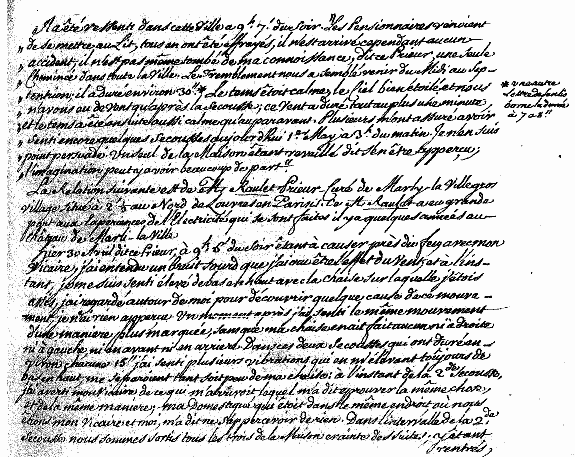 Il a été ressentie dans cette Ville a 9h. 7' du Soir. Les Pensionnaires venoient
de se mettre au Lit, tous en ont été effrayés, il n'est arrivé cependant aucun
accident; il n'est pas même tombé de ma connoissance, dit ce Prieur, une seule
Cheminée dans toute la Ville. Le Tremblement nous a semblé venir du Midi au Sep-
tention, il a duré environ 30". Le tems étoit calme, le Ciel bien étoilé, et nous
n'avons eu de Vent qu'après la Secousse; ce Vent a duré tout au plus une minute,
et le tems a été ensuite aussi calme qu'auparavant. Plusieurs m'ont assuré avoir
Senti encore quelques Secousses aujourd'hui 1er May, à 3h. du matin. Je n'en suis
point persuadé. Un seul de la Maison étant reveillé dit s'en être apperçu;
l'imagination peut y avoir beaucoup de part."
* une autre
Lettre de Senlis
borne la durée
à 7 ou 8"
La Relation suivante est de M. Roulet Prieur Curé de Marly-la-Ville gros
village situé à 2 au Nord de Louvres en Parisis. Ce M. Roulet a eu grande
part aux Experiences de l'Electricité qui se sont faites il y a quelques années au
Château de Marli-la-Ville
Hier 30 Avril dit ce Prieur, à 9h. 5' du Soir étant à causer près du feu avec mon
Vicaire, j'ai entendu un bruit Sourd que j'ai cru être l'effet du Vent, et à l'ins-
tant, je me suis senti élevé de bas en haut avec la chaise sur laquelle j'étois
assis, j'ai regardé autour de moi pour découvrir quelque cause de ce mouve-
ment, je n'ai rien apperçu. Un moment après j'ai senti le même mouvement
d'une maniere plus marquée, sans que ma chaise en ait fait aucun, ni à droite
ni à gauche, ni en avant ni en arriere. Dans ces deux Secousses qui ont duré en-
viron chacune 15" j'ai Senti plusieurs vibrations qui en m'élevant toujours de
bas en haut, me séparoient tant soit peu de ma chaise: à l'instant de la 2de Secousse,
j'ai averti mon Vicaire, de ce qui m'arrivoit lequel m'a dit éprouver la même chose,
et de la même maniere; ma Domestique qui étoit dans le même endroit où nous
étions mon Vicaire et moi, m'a dit ne s'appercevoir de rien. Dans l'intervale de la 2de
Secousse nous sommes sortis tous les trois de la Maison crainte des suites; y étant
rentrés,